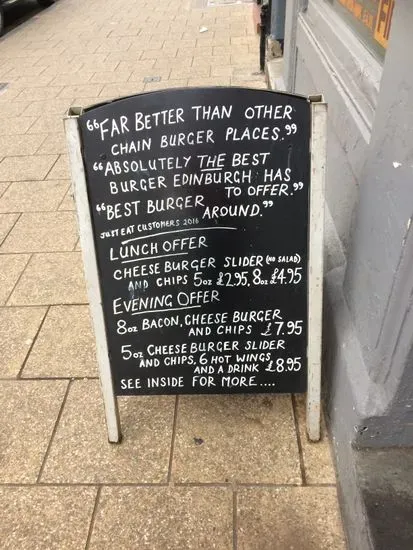 “FAR BETTER THAN OTHER
CHAIN BURGER PLACES.”
“ABSOLUTELY THE BEST
BURGER EDINBURGH HAS
TO OFFER.”
“BEST BURGER
AROUND.”
JUST EAT CUSTOMERS 2016
LUNCH OFFER
CHEESE BURGER SLIDER (NO SALAD)
AND CHIPS 5oz £2.95, 8oz £4.95
EVENING OFFER
8oz BACON, CHEESE BURGER
AND CHIPS £7.95
5oz CHEESE BURGER SLIDER
AND CHIPS, 6 HOT WINGS
AND A DRINK £8.95
SEE INSIDE FOR MORE....